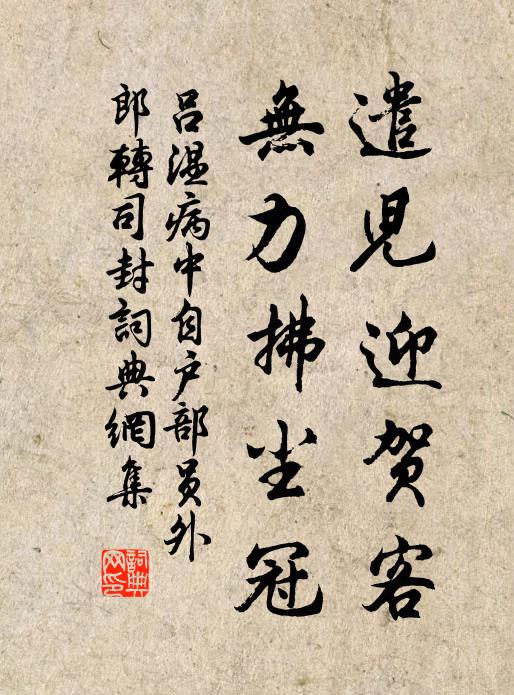 遣児迎贺客
無力拂尘冠
吕温病中自户部員外
郎轉司封詞典網集
詞典网印